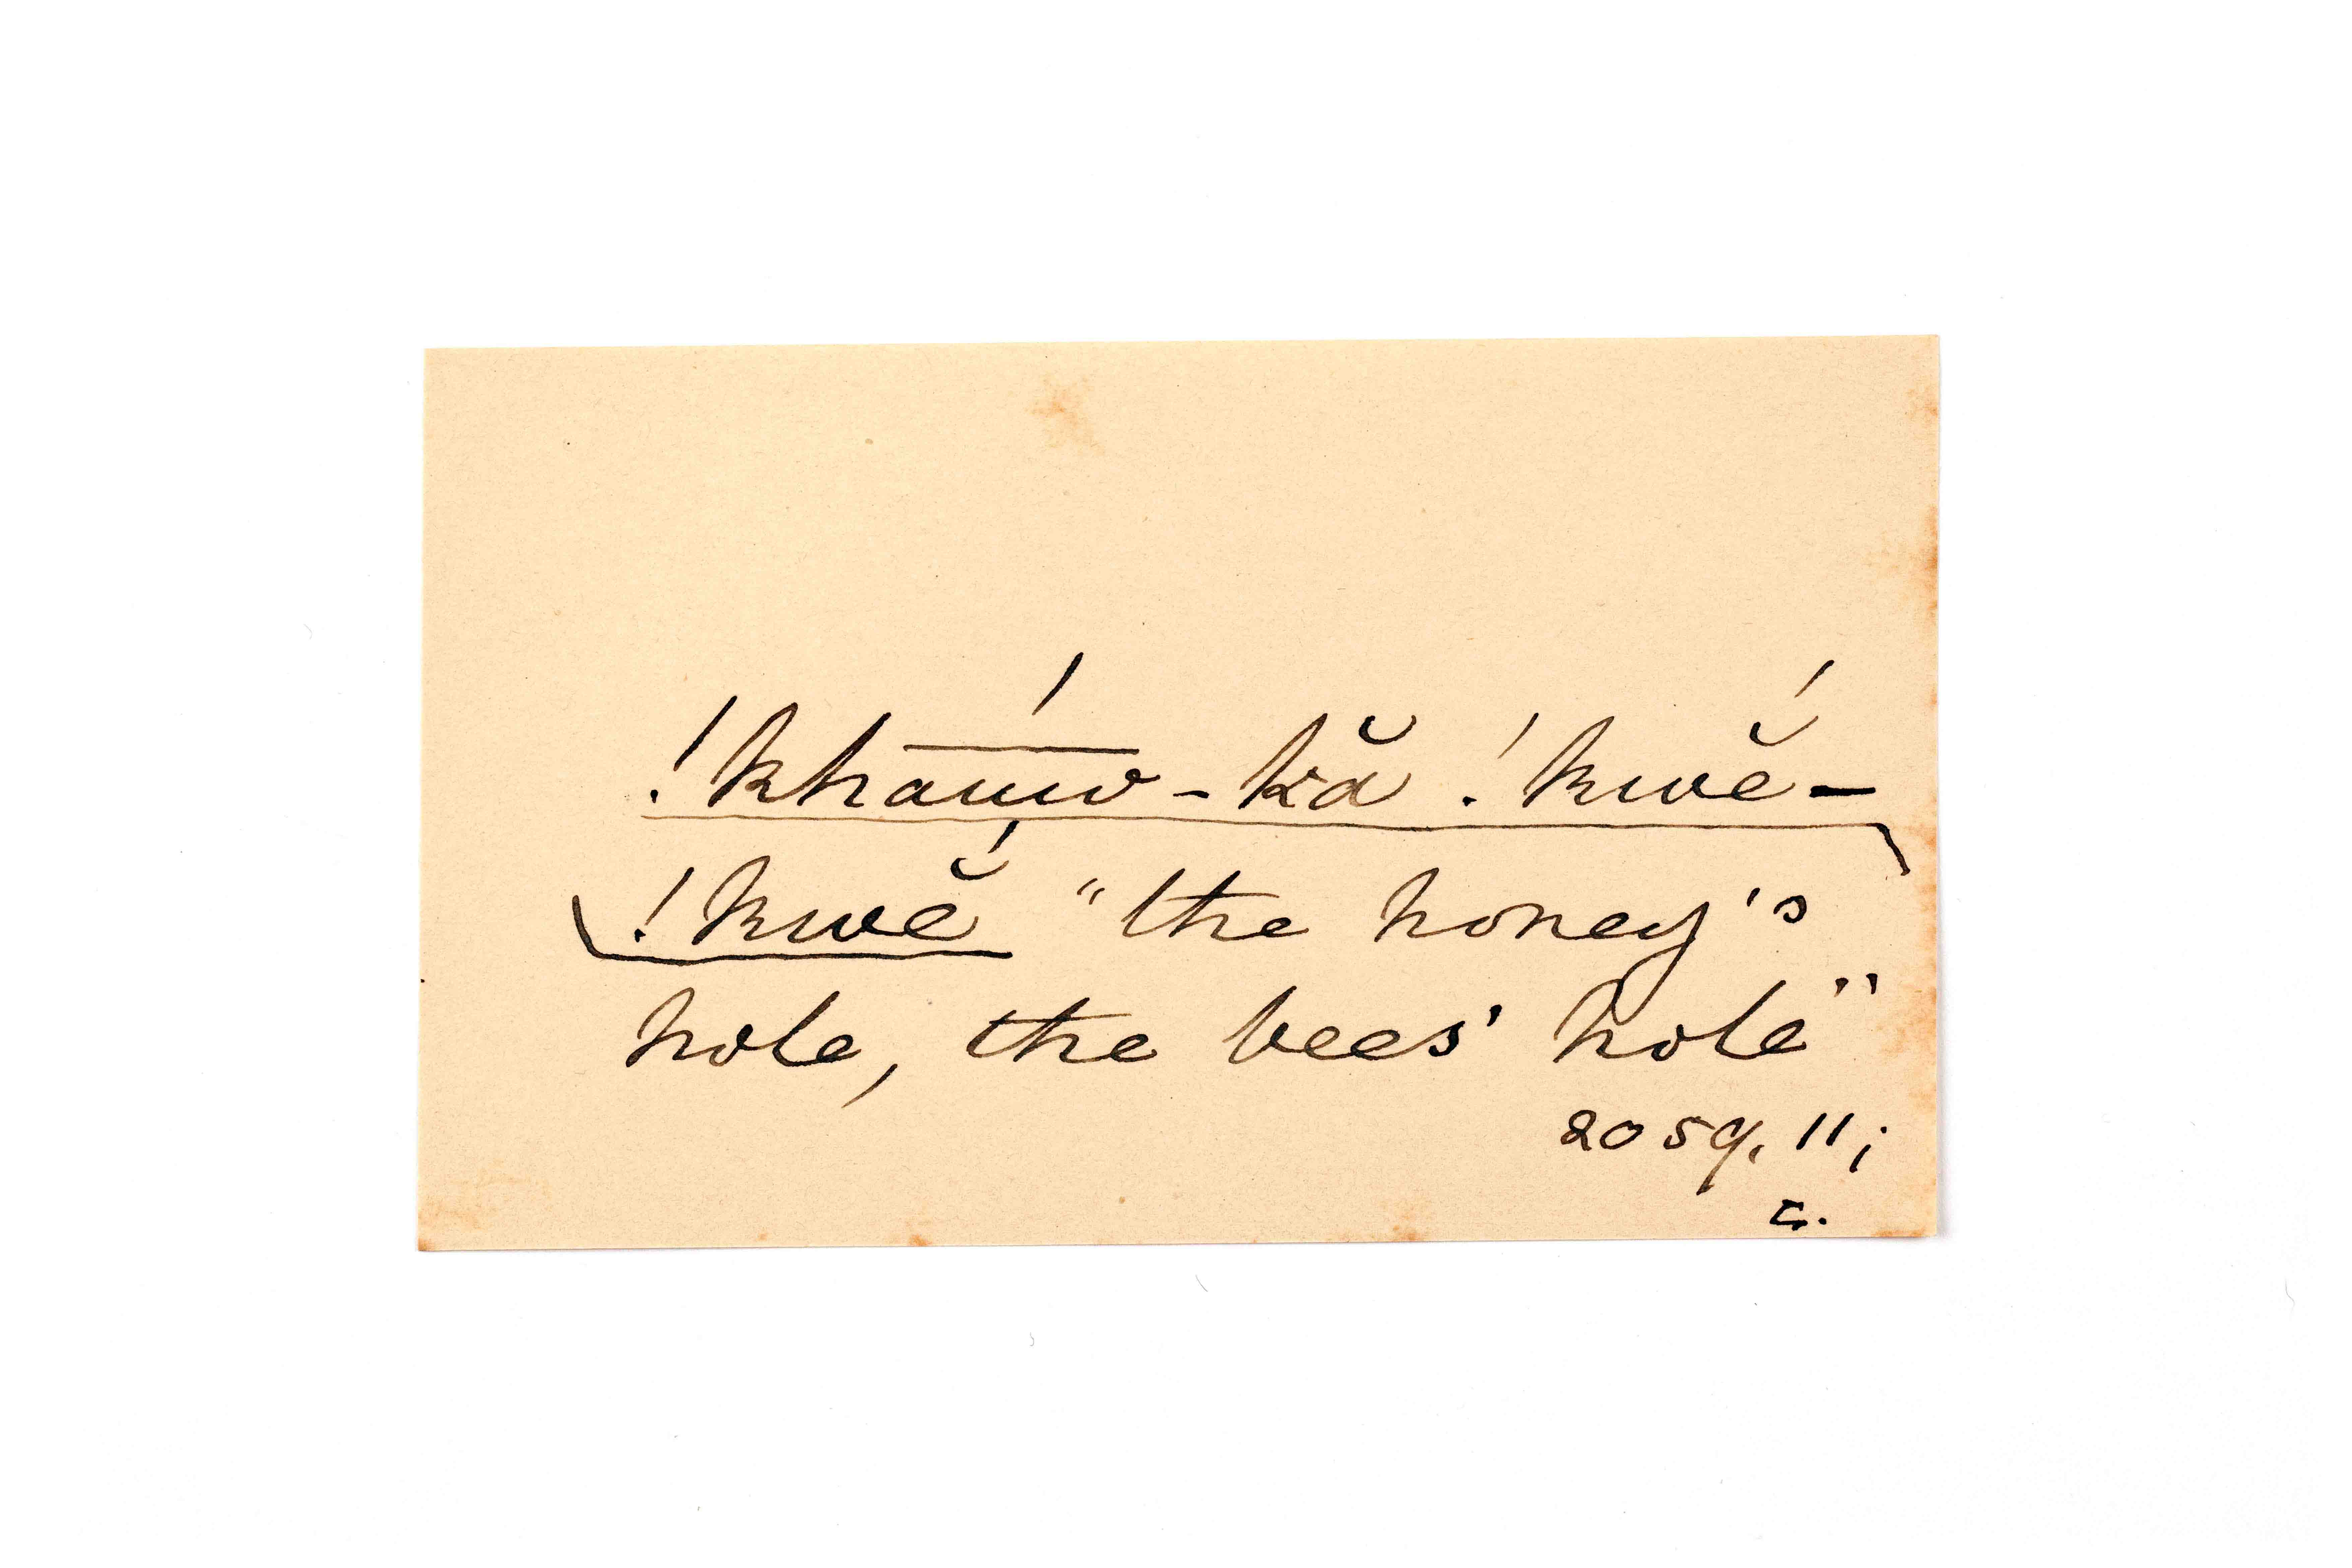 !khā́uwo-kă !kwĕ́-
!kwĕ́ "the honey's
hole, the bees' hole"
2059. 11;